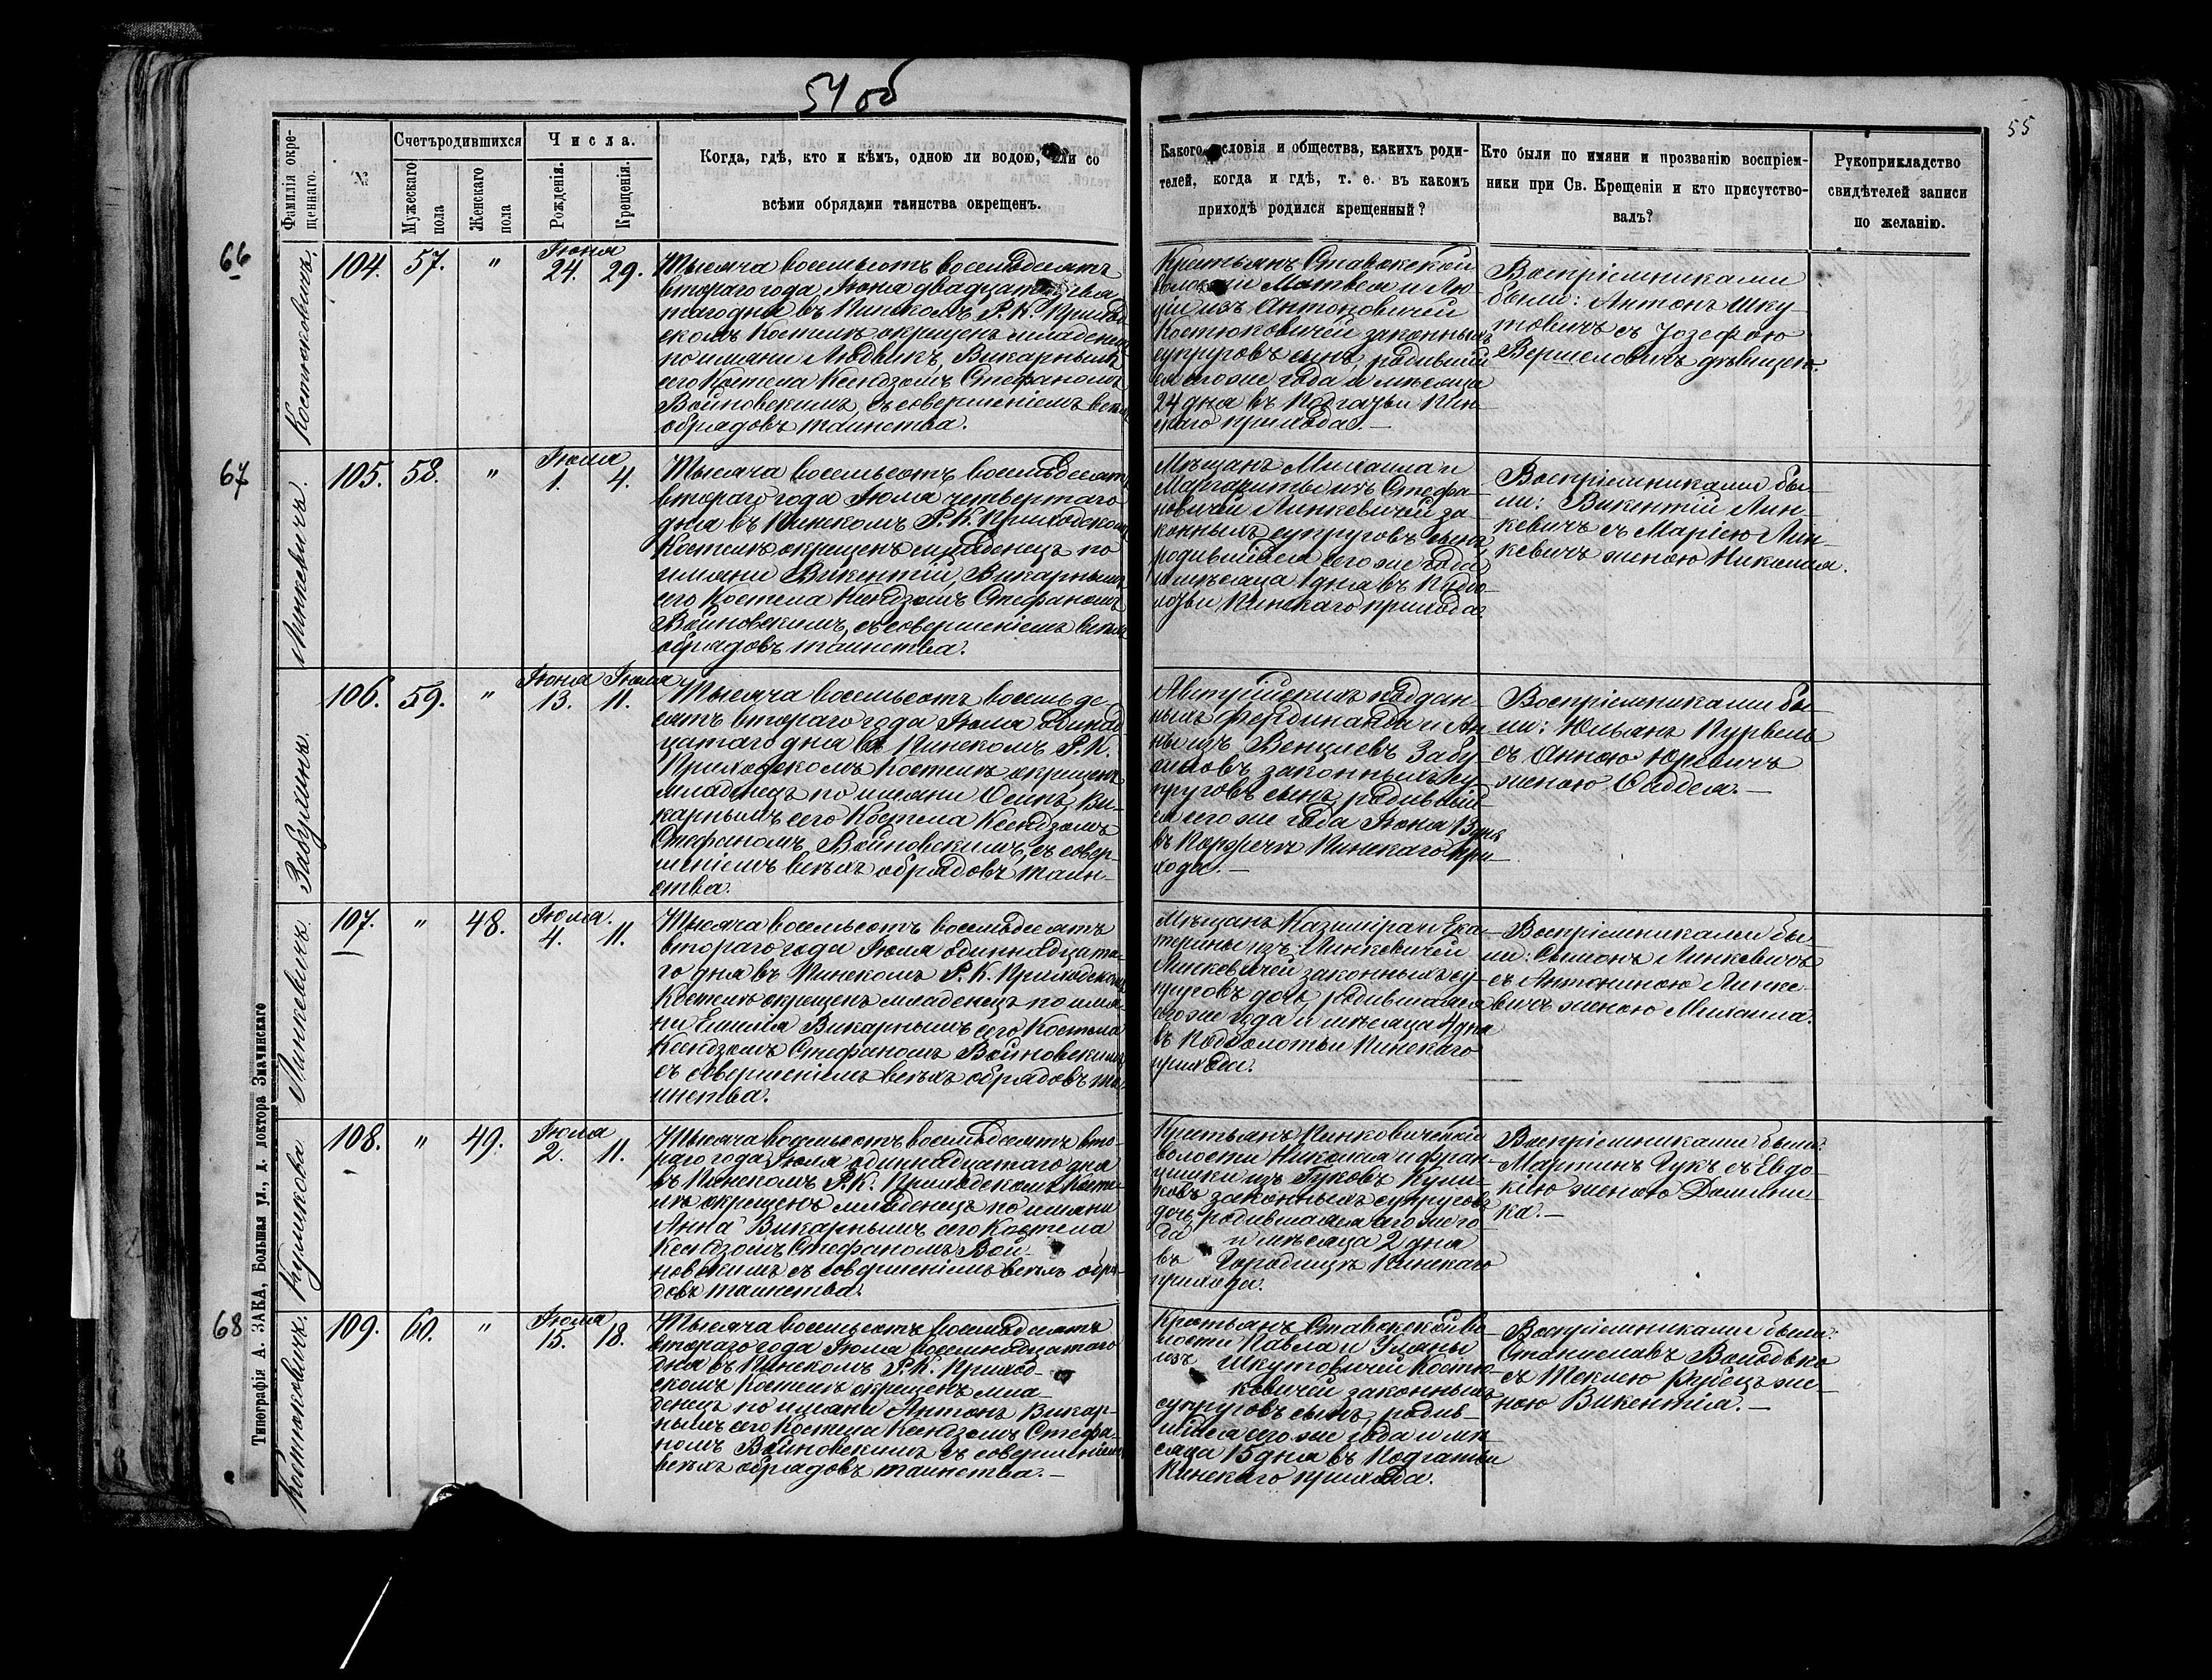 54 об
55
Фамилія окре-
щеннаго.
№
Счетъ родившихся
Мужескаго
пола
Женскаго
пола
Числа.
Рожденія.
Крещенія.
Когда, гдѣ, кто и кѣмъ, одною ли водою, или со
всѣми обрядами таинства окрещенъ.
Какого сословія и общества, какихъ роди-
телей, когда и гдѣ, т. е. въ какомъ
приходѣ родился крещенный?
Кто были по имяни и прозванію воспріем-
ники при Св. Крещеніи и кто присутство-
валъ?
Рукоприкладство
свидѣтелей записи
по желанію.
66
Костюковичъ.
104. 57. " Іюня 24. 29.
Тысяча восемьсотъ восемьдесятъ
втораго года Іюня двадцать девя-
таго дня въ Пинскомъ Р. К. Приход-
скомъ Костелѣ окрещенъ младенецъ
по имяни Людвикъ, Викарнымъ
сего Костела Ксендзомъ Стефаномъ
Войновскимъ, съ совершеніемъ всѣхъ
обрядовъ таинства.
Крестьянъ Ставокской
волости Матвея и Лю-
ціи изъ Антоновичей
Костюковичей законныхъ
супруговъ сынъ, родившій-
ся сего же года и мѣсяца
24 дня въ Подгатьи Пин-
скаго прихода. —
Воспріемниками
были: Антонъ Шку-
товичъ съ Іозефою
Вершеловичъ дѣвицею.
67
Линкевичъ.
105. 58. " Іюля 1. 4.
Тысяча восемьсотъ восемьдесятъ
втораго года Іюля четвертаго
дня въ Пинскомъ Р. К. Приходскомъ
Костелѣ окрещенъ младенецъ по
имяни Викентій, Викарнымъ
сего Костела Ксендзомъ Стефаномъ
Войновскимъ, съ совершеніемъ всѣхъ
обрядовъ таинства.
Мѣщанъ Михаила и
Маргариты изъ Стефа-
новичей Линкевичей за-
конныхъ супруговъ сынъ,
родившійся сего же года
и мѣсяца 1 дня въ
Пинскаго прихода.
Воспріемниками бы-
ли: Викентій Лин-
кевичъ съ Маріею Лин-
кевичъ женою Николая.
Забулинъ.
106. 59. " Іюня 13. Іюля 11.
Тысяча восемьсотъ восемьде
сятъ втораго года Іюля одинад-
цатаго дня въ Пинскомъ Р. К.
Приходскомъ Костелѣ окрещенъ
младенецъ по имяни Осипъ, Ви-
карнымъ сего Костела Ксендзомъ
Стефаномъ Войновскимъ, съ совер-
шеніемъ всѣхъ обрядовъ таин-
ства.
Австрійскихъ поддан-
ныхъ Фердинанда и Ан-
ны изъ Венциевъ Забу-
линовъ законныхъ су-
пруговъ сынъ, родившій-
ся сего же года Іюня 13 дня
въ Парѣчьѣ Пинскаго при-
хода. —
Воспріемниками бы-
ли: Юльянъ Пурвель
съ Анною Юревичъ
женою Фаддея. —
Линкевичъ.
107. " 48. Іюля. 4. 11.
Тысяча восемьсотъ восемьдесятъ
втораго года Іюля одиннадцата-
го дня въ Пинскомъ Р. К. Приходскомъ
Костелѣ окрещенъ младенецъ по имя-
ни Емилія Викарнымъ сего Костела
Ксендзомъ Стефаномъ Войновскимъ
съ совершеніемъ всѣхъ обрядовъ та-
инства.
Мѣщанъ Казиміра и Ека-
терины изъ Линкевичей
Линкевичей законныхъ су-
пруговъ дочь, родившаяся
сего же года и мѣсяца 4 дня
въ Подболотьи Пинскаго
прихода.
Воспріемниками бы
ли: Сымонъ Линкевичъ
съ Антониною Линке-
вичъ женою Михаила.
Куликова
108. " 49. Іюля 2. 11.
Тысяча восемьсотъ восемьдесятъ вто-
раго года Іюля одиннадцатаго дня
въ Пинскомъ Р. К. Приходскомъ Косте-
лѣ окрещенъ младенецъ по имяни
Анна Викарнымъ сего Костела
Ксендзомъ Стефаномъ Вой-
новскимъ съ совершеніемъ всѣхъ обря-
довъ таинства.
Крестьянъ Пинковичской
волости Николая и Фран-
цишки изъ Гуковъ Кули-
ковъ законныхъ супруговъ
дочь, родившаяся сего же го-
да и мѣсяца 2 дня
въ Городищѣ Пинскаго
прихода.
Воспріемниками были:
Мартинъ Гукъ съ Евдо-
кіею женою Домини-
ка. —
68
Костюковичъ.
109. 60. " Іюля 15. 18.
Тысяча восемьсотъ восемьдесятъ
втораго года Іюля восемнадцатаго
дня въ Пинскомъ Р. К. Приход-
скомъ Костелѣ окрещенъ мла-
денецъ по имяни Антонъ Викар-
нымъ сего Костела Ксендзомъ Стефа-
номъ Войновскимъ съ совершеніемъ
всѣхъ обрядовъ таинства. —
Крестьянъ Ставокской во-
лости Павла и Ульяны
изъ Шкутовичей Костю-
ковичей законныхъ
супруговъ сынъ, родив-
шійся сего же года и мѣ-
сяца 15 дня въ Подгатьи
Пинскаго прихода.
Воспріемниками были:
Станиславъ Володько
съ Теклею Рубецъ же-
ною Викентія. —
Типографія А. ЗАКА, Большая ул., д. доктора Значинскаго